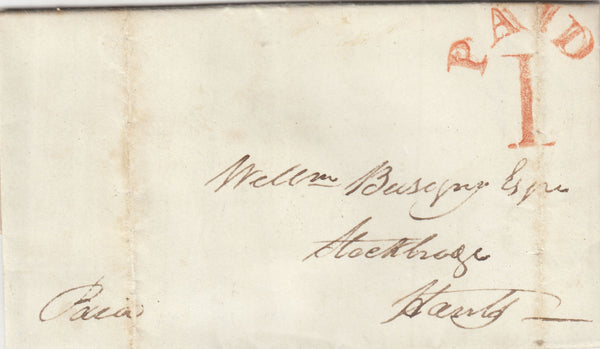 PAID
1
Willm Busigny Esqre
Stockbridge
Hants
Paid